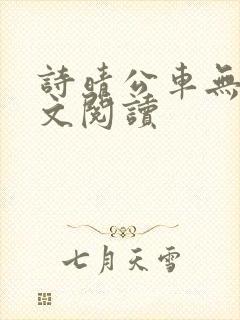 詩晴公車無
文閱讀
七月天雪